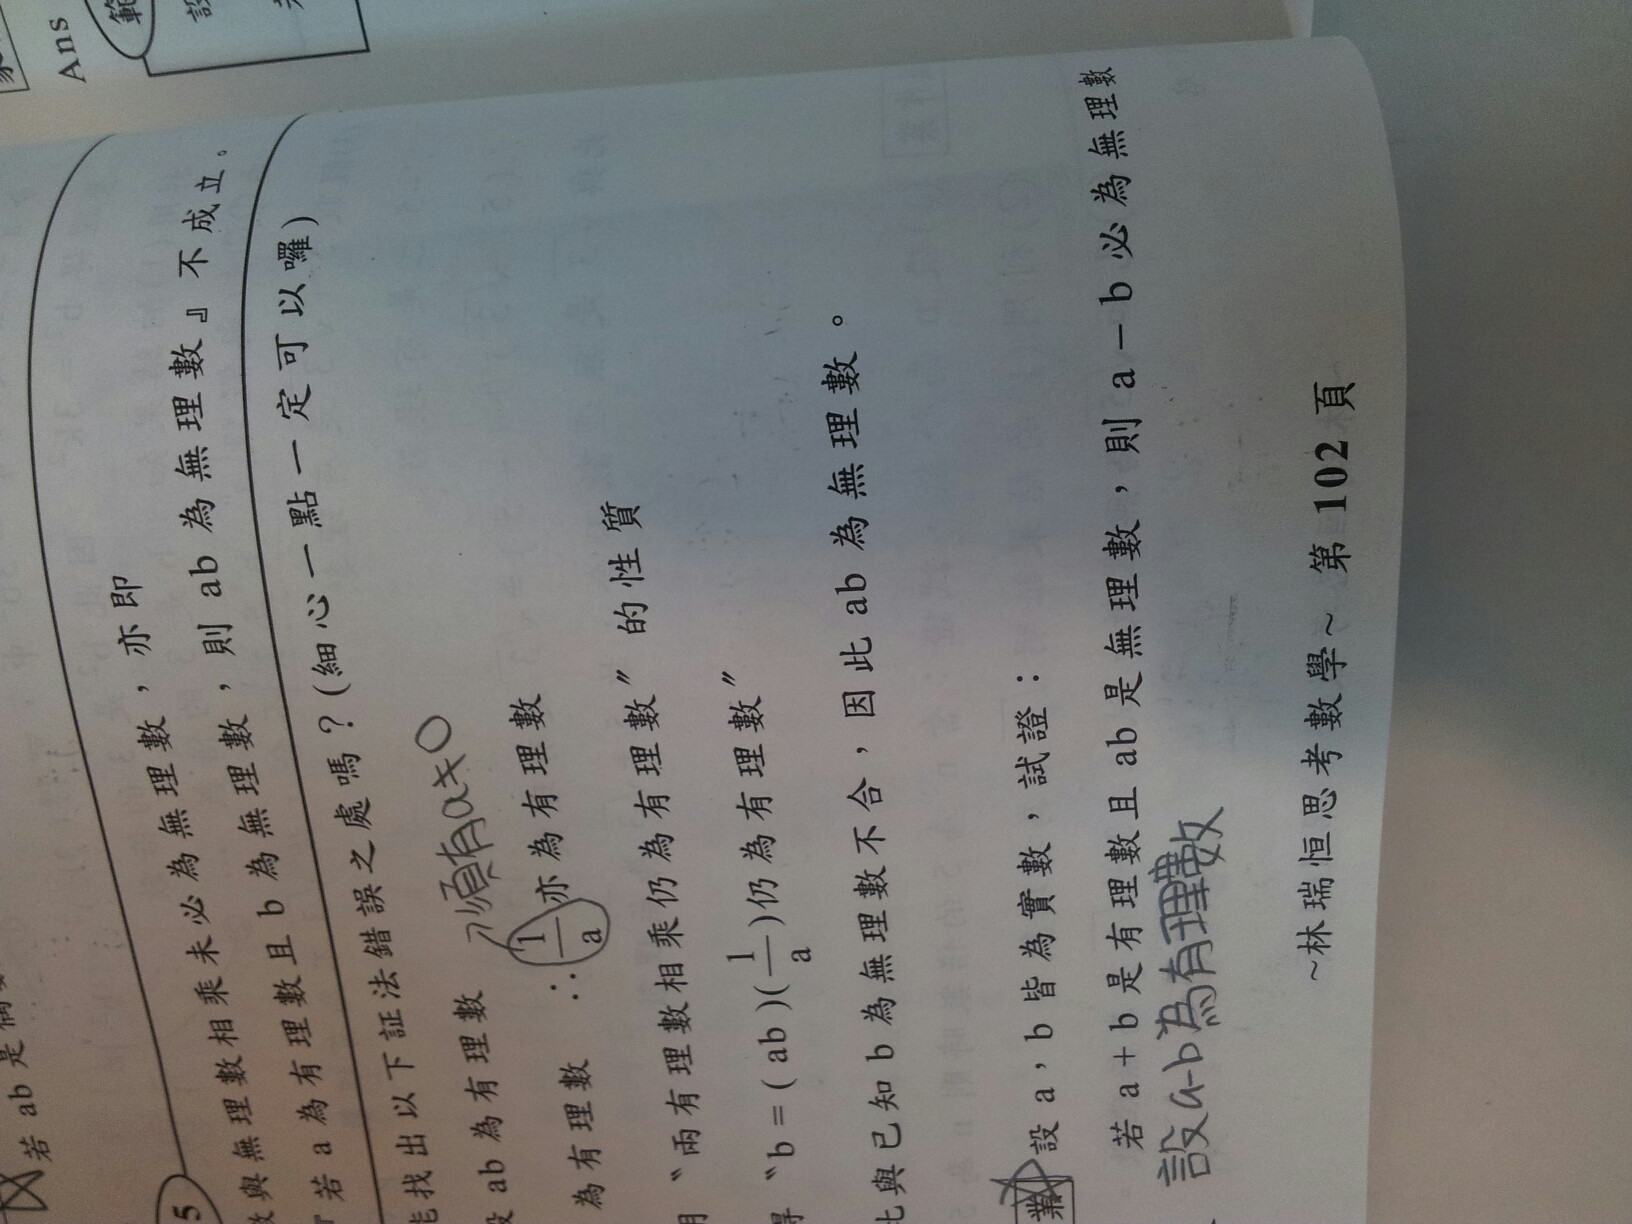 Ans
範
若 ab 是
5
數與無理數相乘未必為無理數，亦即
『若 a 為有理數且 b 為無理數，則 ab 為無理數』不成立。
能找出以下証法錯誤之處嗎？(細心一點一定可以囉)
設 ab 為有理數
須有a≠0
為有理數 ∴ 1/a 亦為有理數
用〝兩有理數相乘仍為有理數〞的性質
得〝b = ( ab )( 1/a )仍為有理數〞
此與已知 b 為無理數不合，因此 ab 為無理數。
設 a，b 皆為實數，試證：
若 a + b 是有理數且 ab 是無理數，則 a － b 必為無理數
設a-b為有理數
~林瑞恒思考數學~ 第 102 頁